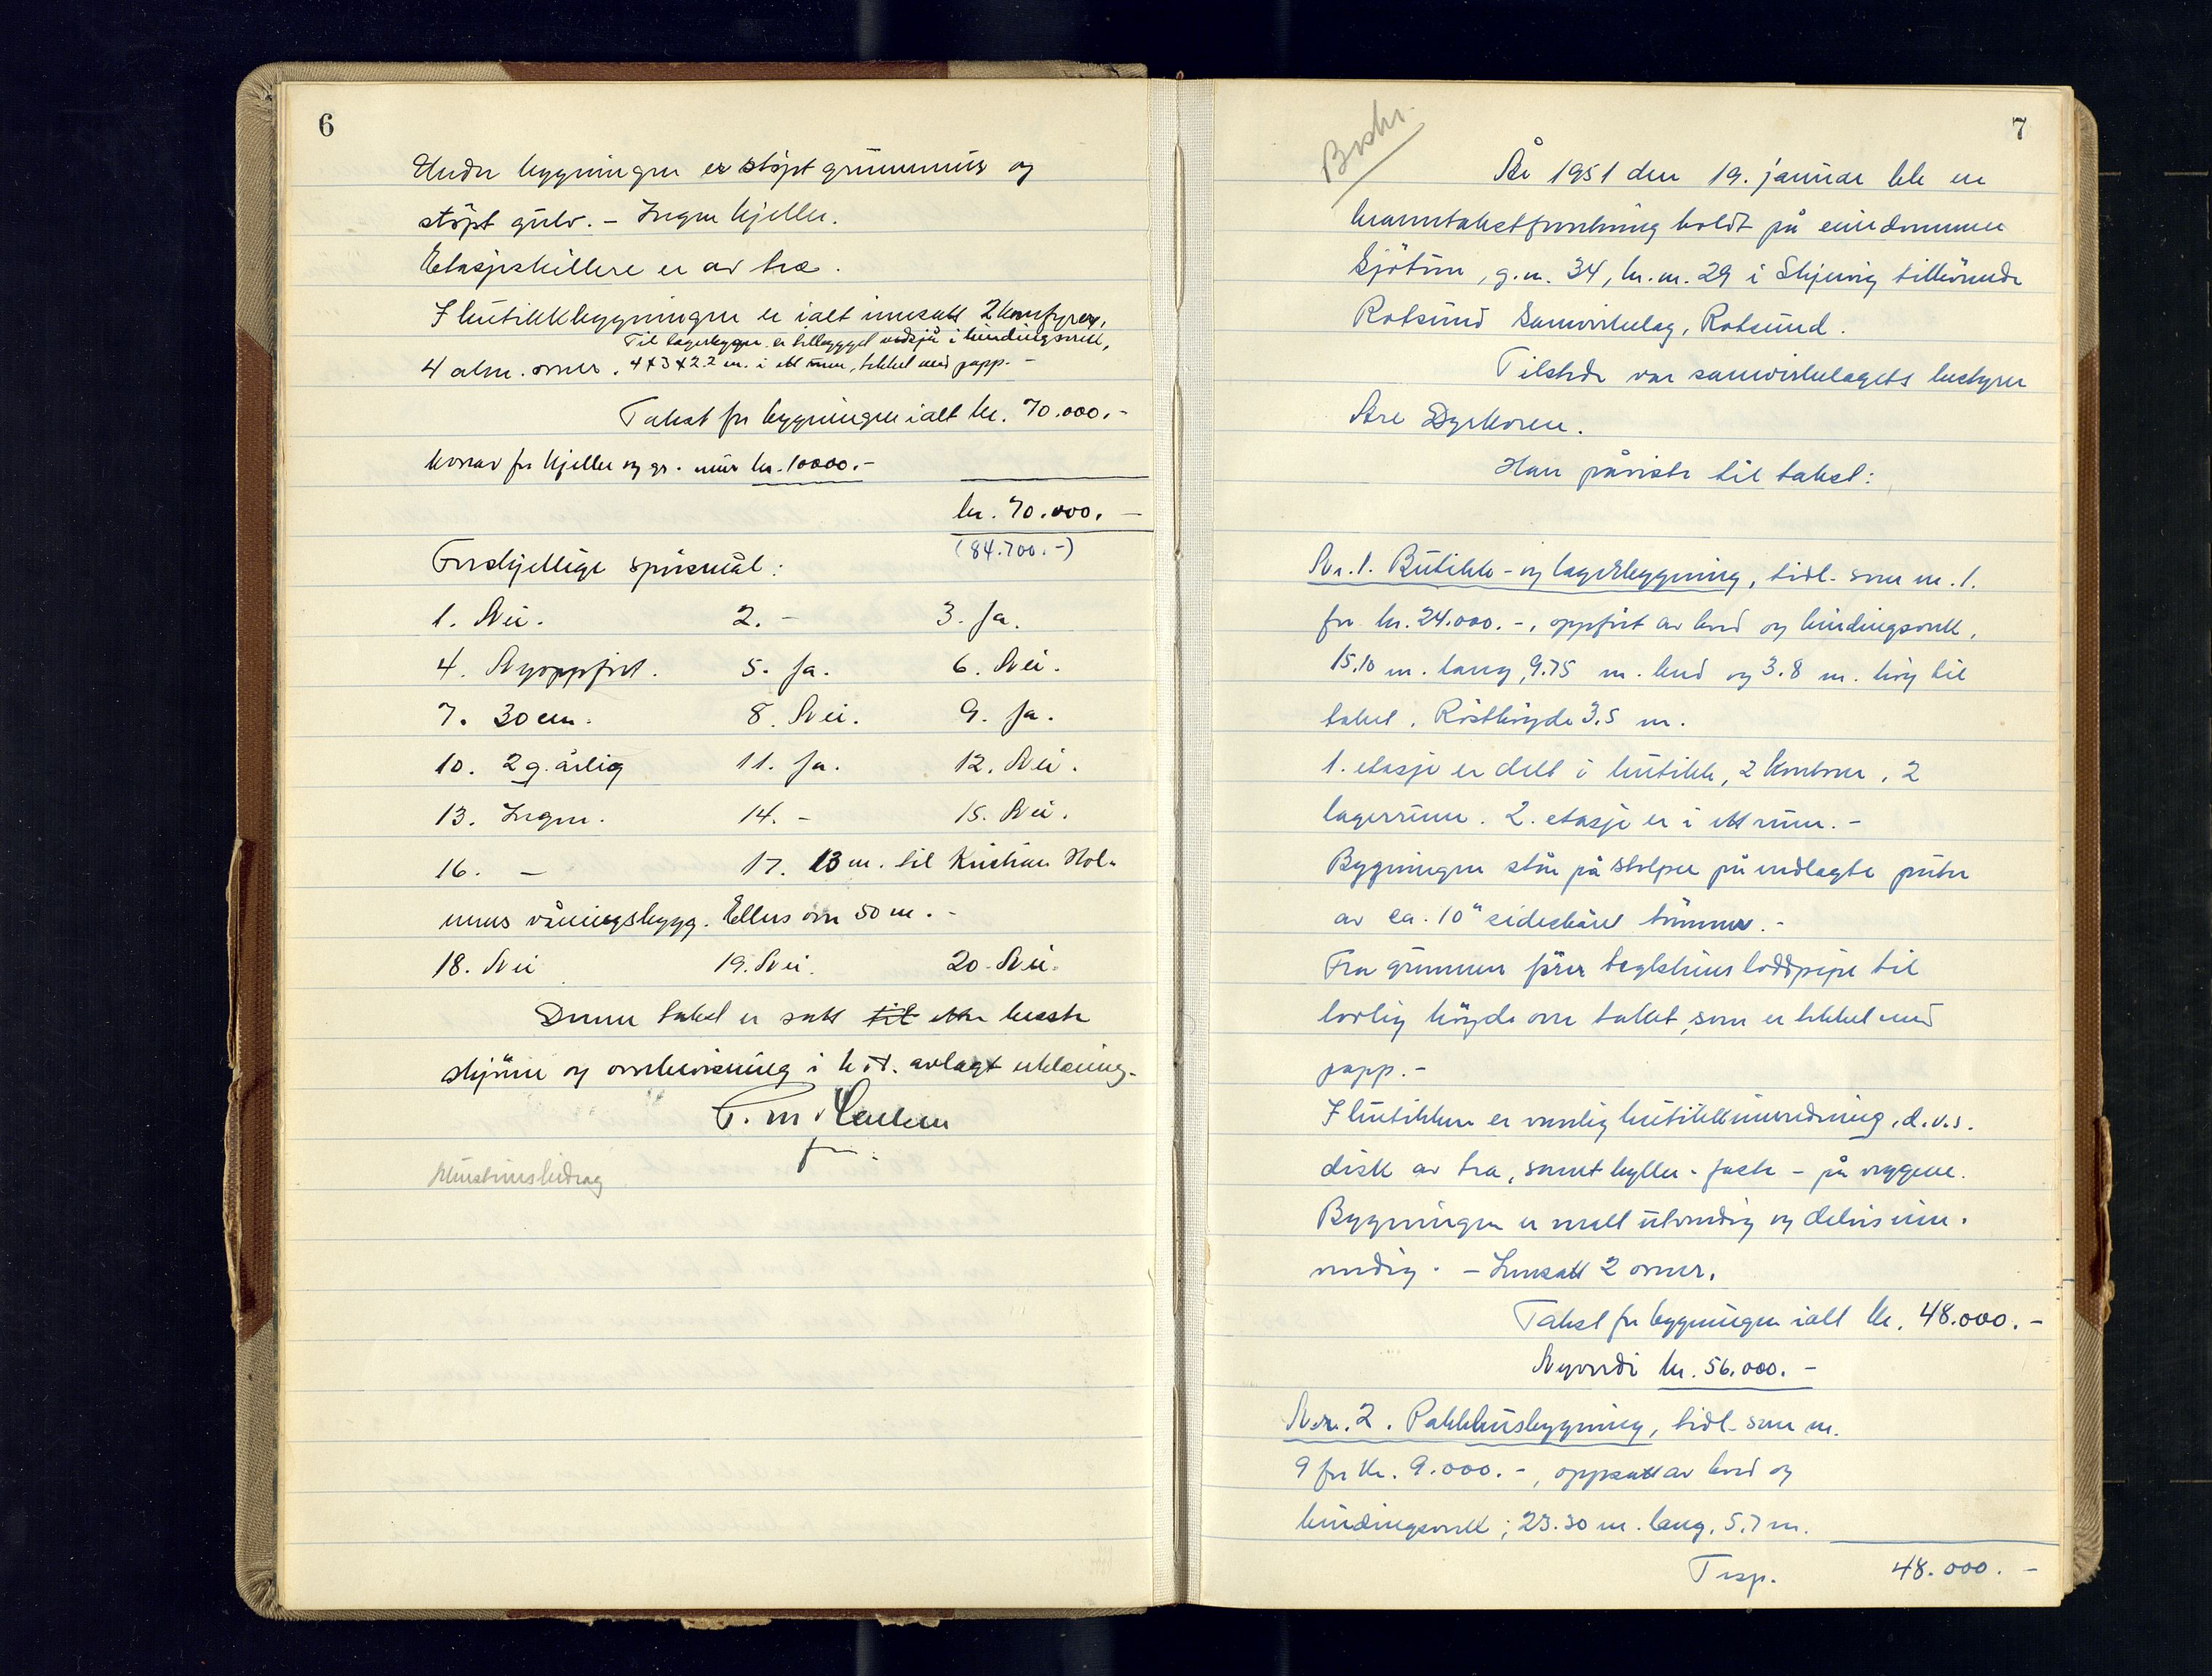 6
Under bygningen er støpt grunnmur og
støpt gulv. – Ingen kjeller.
Etasjeskillere er av tre.
I butikkbygningen er ialt innsatt 2 komfyrer,
Til lagerbygn. er tilbygget vedsjå i bindingsverk,
4 alm. ovner. 4x3x2.2 m. i ett rum, tekket med papp. –
Takst for bygningen ialt kr. 70.000.–
hvorav for kjeller og gr. mur kr. 10000.–
kr. 70.000. –
(84.700.-)
Forskjellige spørsmål:
1. Nei. 2. – 3. Ja.
4. Nyoppført. 5. Ja. 6. Nei.
7. 30 cm. 8. Nei. 9. Ja.
10. 2 g. årlig 11. Ja. 12. Nei.
13. Ingen. 14. – 15. Nei.
16. – 17. 13 m. til Kristian Hol-
mens våningsbygg. Ellers over 50 m. –
18. Nei 19. Nei. 20. Nei.
Denne takst er satt til etter beste
skjønn og overbevisning i h.t. avlagt erklæring.
7
År 1951 den 19. januar ble en
branntakstforretning holdt på eiendommen
Sjøtun, g.n. 34, br.nr. 29 i Skjervøy tilhørende
Rotsund Samvirkelag, Rotsund.
Tilstede var samvirkelagets bestyrer
Are Dyrkoren.
Han påviste til takst:
Nr. 1. Butikk- og lagerbygning, tidl. som nr. 1.
for kr. 24.000.–, oppført av bord og bindingsverk,
15.10 m. lang, 9.75 m. bred og 3.8 m. høy til
taket. Rösthøyde 3.5 m.
1. etasje er delt i butikk, 2 kontorer, 2
lagerrum. 2. etasje er i ett rum. –
Bygningen står på stolper på nedlagte puter
av ca. 10" sideskåret tømmer. –
Fra grunnen fører teglsteins loddpipe til
lovlig høyde over taket, som er tekket med
papp. –
I butikken er vanlig butikkinnredning, d.v.s.
disk av tre, samt hyller – faste – på veggene.
Bygningen er malt utvendig og delvis inn-
vendig. – Innsatt 2 ovner.
Takst for bygningen ialt kr. 48.000. –
Nyverdi kr. 56.000. –
Nr. 2. Pakkhusbygning, tidl. som nr.
9 for kr. 9.000.–, oppsatt av bord og
bindingsverk; 23.30 m. lang, 5.7 m.
Trsp. 48.000. –